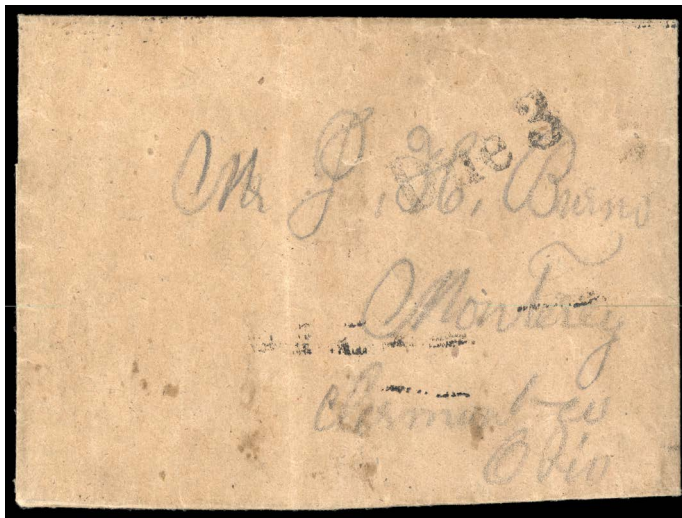 Due 3
Mr J. H. Burns
Monterey
Clermont co
Ohio